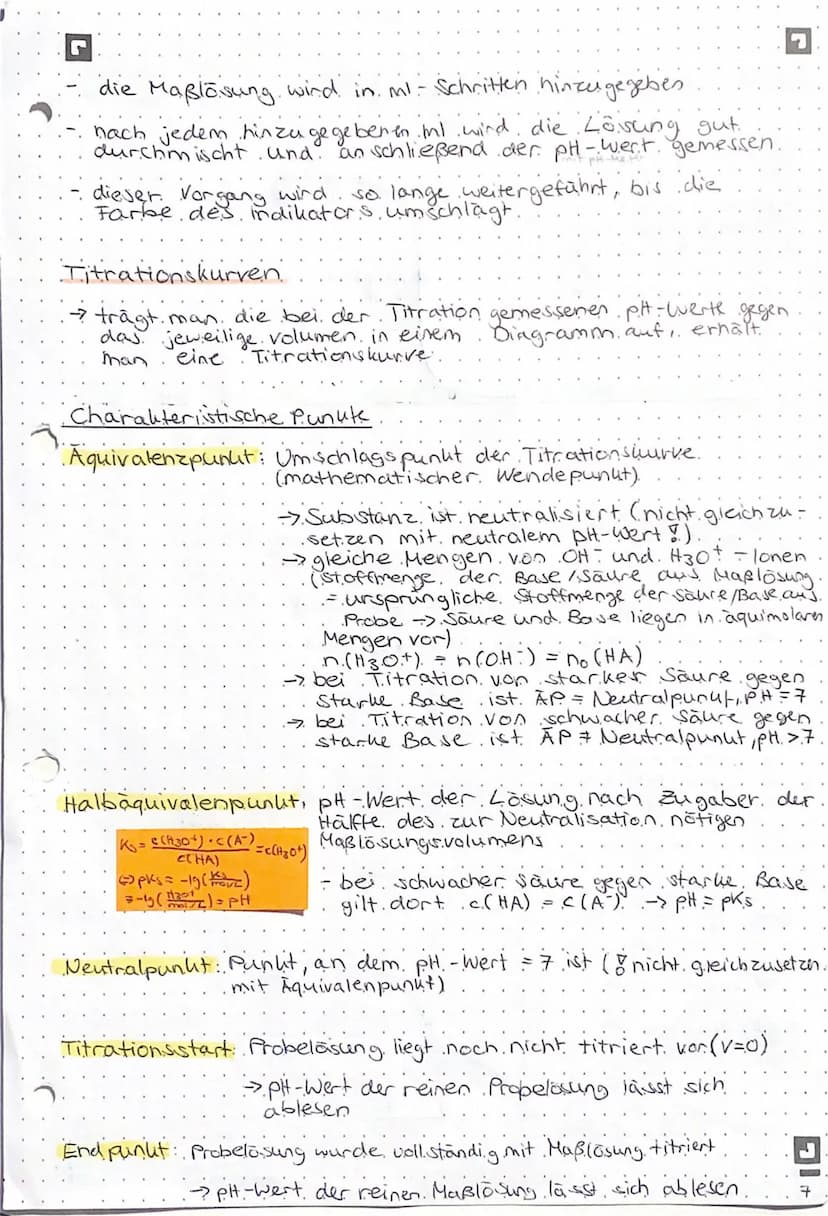 - die Maßlösung wird in ml-Schritten hinzugegeben
- nach jedem hinzugegebenen ml wird die Lösung gut
durchmischt und anschließend der pH-Wert gemessen
- dieser Vorgang wird so lange weitergeführt, bis die
Farbe des Indikators umschlägt
Titrationskurven
→ trägt man die bei der Titration gemessenen pH-Werte gegen
das jeweilige Volumen in einem Diagramm auf, erhält
man eine Titrationskurve
Charakteristische Punkte
Äquivalenzpunkt: Umschlagspunkt der Titrationskurve
(mathematischer Wendepunkt)
→ Substanz ist neutralisiert (nicht gleichzu-
setzen mit neutralem pH-Wert!)
→ gleiche Mengen von OH⁻ und H₃O⁺-Ionen
(Stoffmenge der Base/Säure aus Maßlösung
= ursprüngliche Stoffmenge der Säure/Base aus
Probe → Säure und Base liegen in äquimolaren
Mengen vor)
n(H₃O⁺) = n(OH⁻) = n₀(HA)
→ bei Titration von starker Säure gegen
starke Base ist ÄP = Neutralpunkt, pH = 7
→ bei Titration von schwacher Säure gegen
starke Base ist ÄP ≠ Neutralpunkt, pH > 7
Halbäquivalenpunkt: pH-Wert der Lösung nach Zugaber der
Hälfte des zur Neutralisation nötigen
Maßlösungsvolumens
Ks = c(H₃O⁺) · c(A⁻) / c(HA) = c(H₃O⁺)
⇔ pKs = -lg(Ks / mol/L)
= -lg(H₃O⁺ / mol/L) = pH
- bei schwacher Säure gegen starke Base
gilt dort c(HA) = c(A⁻) → pH = pKs
Neutralpunkt: Punkt, an dem pH-Wert = 7 ist (! nicht gleichzusetzen
mit Äquivalenpunkt)
Titrationsstart: Probelösung liegt noch nicht titriert vor (V=0)
→ pH-Wert der reinen Probelösung lässt sich
ablesen
Endpunkt: Probelösung wurde vollständig mit Maßlösung titriert
→ pH-Wert der reinen Maßlösung lässt sich ablesen
7